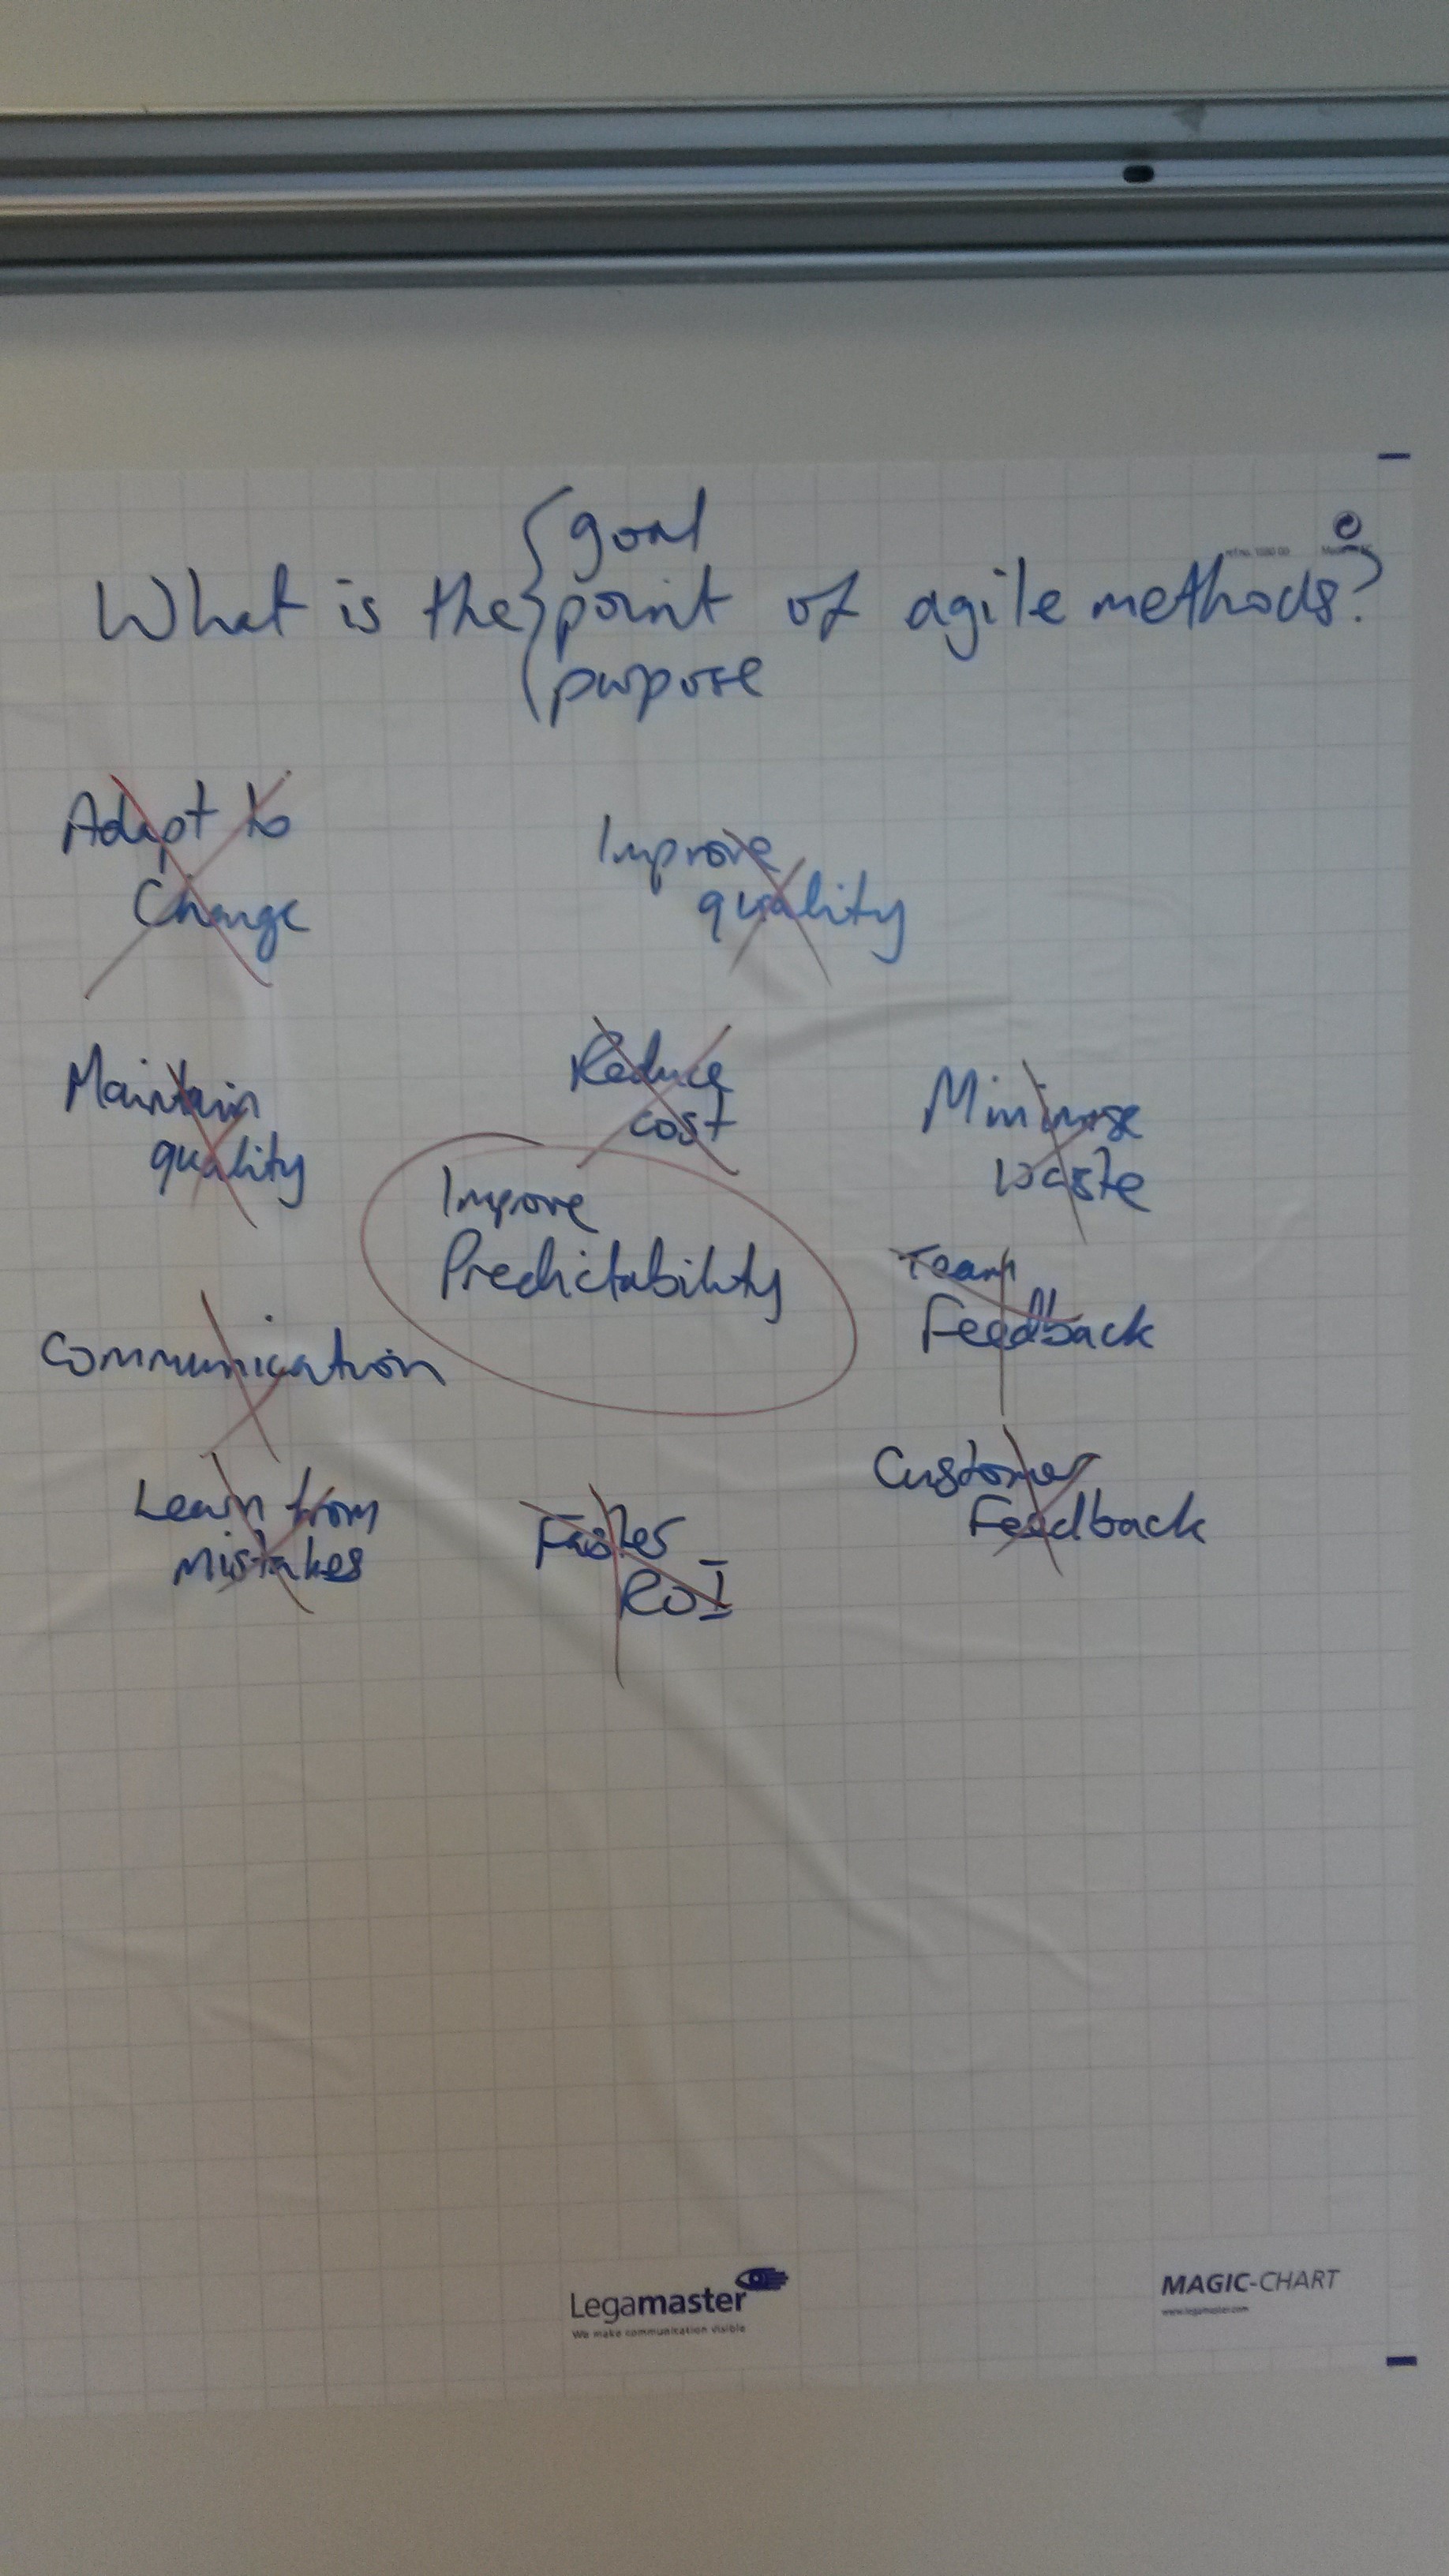 goal
What is the point of agile methods?
purpose
Adapt to
Change
Improve
quality
Maintain
quality
Reduce
cost
Minimise
waste
Improve
Predictability
Team
Feedback
Communication
Customer
Feedback
Learn from
mistakes
Faster
RoI
Legamaster
We make communication visible
MAGIC-CHART
www.legamaster.com